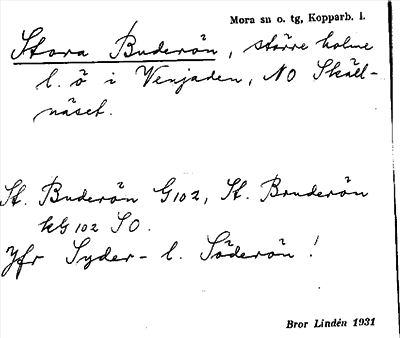 Mora sn o. tg, Kopparb. l.
Stora Buderön, större holme
l. ö i Venjaden, NO Skäll-
näset.
St. Buderön G102, St. Bruderön
kG 102 SO.
Jfr Syder- l. Söderön!
Bror Lindén 1931